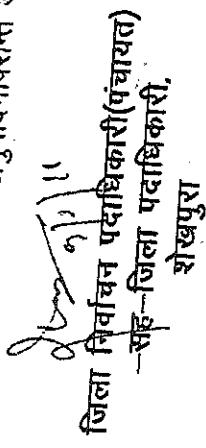 जिला निर्वाचन पदाधिकारी(पंचायत)
–सह–जिला पदाधिकारी,
शेखपुरा